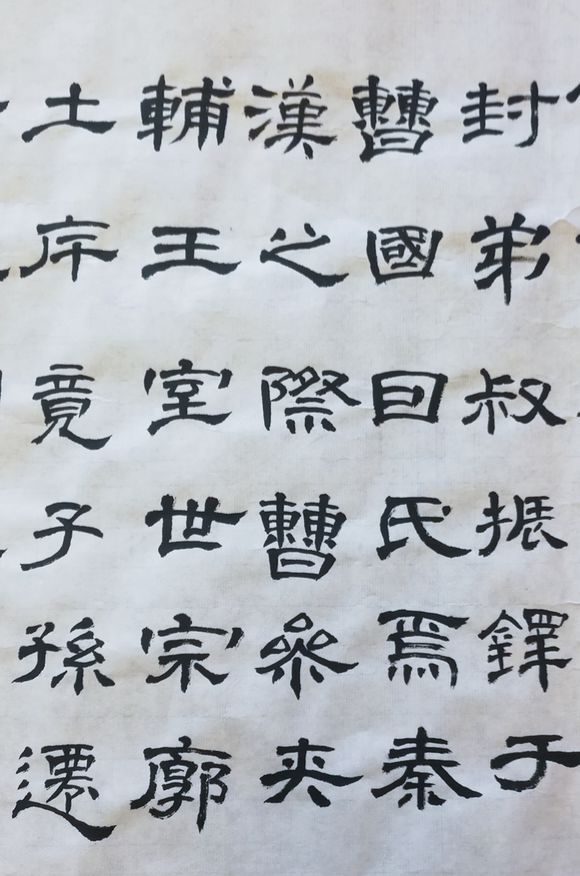 封弟叔振鐸于
曹國因氏焉秦
漢之際曹參夾
輔王室世宗廓
土斥竟子孫遷